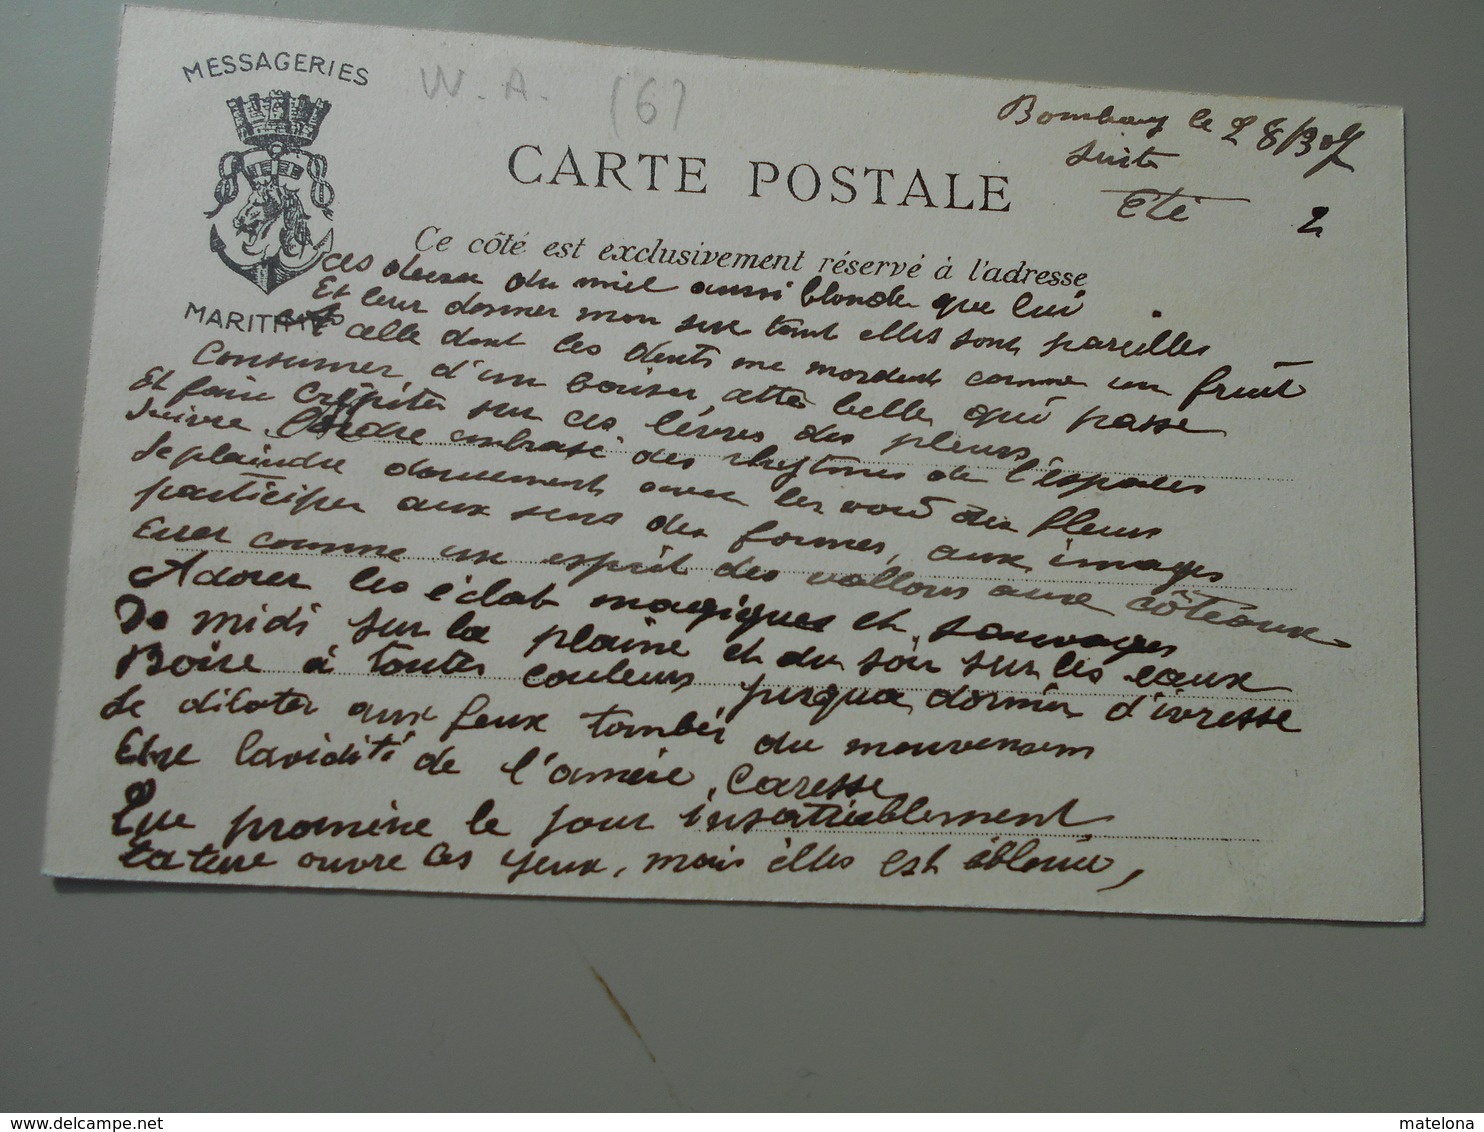 MESSAGERIES
MARITIMES
W. A. (6)
Bombay le 28/3 07
suite
Eté 2
CARTE POSTALE
Ce côté est exclusivement réservé à l'adresse
ces dieux du miel aussi blonde que lui
Et leur donner mon sur tout elles sont pareilles
celle dont les dents me mordent comme un fruit
Consumer d'un baiser cette belle qui passe
Et faire crépiter sur ces lèvres des pleurs
Suivre l'ordre embrasé des rhytmes de l'espaces
Se plaindre doucement avec les voix des fleurs
participer aux sens des formes, aux images
Errer comme un esprit des vallons aux côteaux
Adorer les éclat magiques et sauvages
De midi sur la plaine et du soir sur les eaux
Boire à toutes couleurs jusqua dormir d'ivresse
Se dilater aux feux tombés du mouvement
Etre l'avidité de l'amère caresse
Que promène le jour insatiablement
la terre ouvre ces yeux, mais elles est éblouie,
matelona
www.delcampe.net